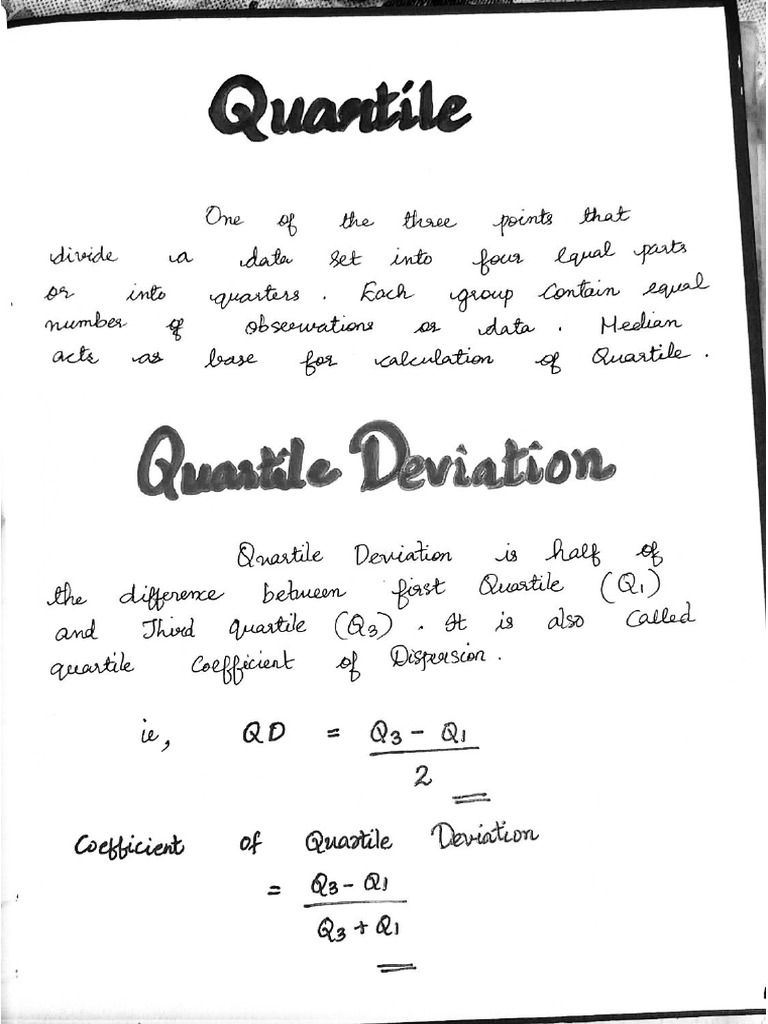 Quartile
One of the three points that
divide a data set into four equal parts
or into quarters. Each group contain equal
number of observations or data. Median
acts as base for calculation of Quartile.
Quartile Deviation
Quartile Deviation is half of
the difference between first Quartile (Q1)
and Third quartile (Q3). It is also called
quartile coefficient of Dispersion.
ie, QD = Q3 - Q1
2
Coefficient of Quartile Deviation
= Q3 - Q1
Q3 + Q1